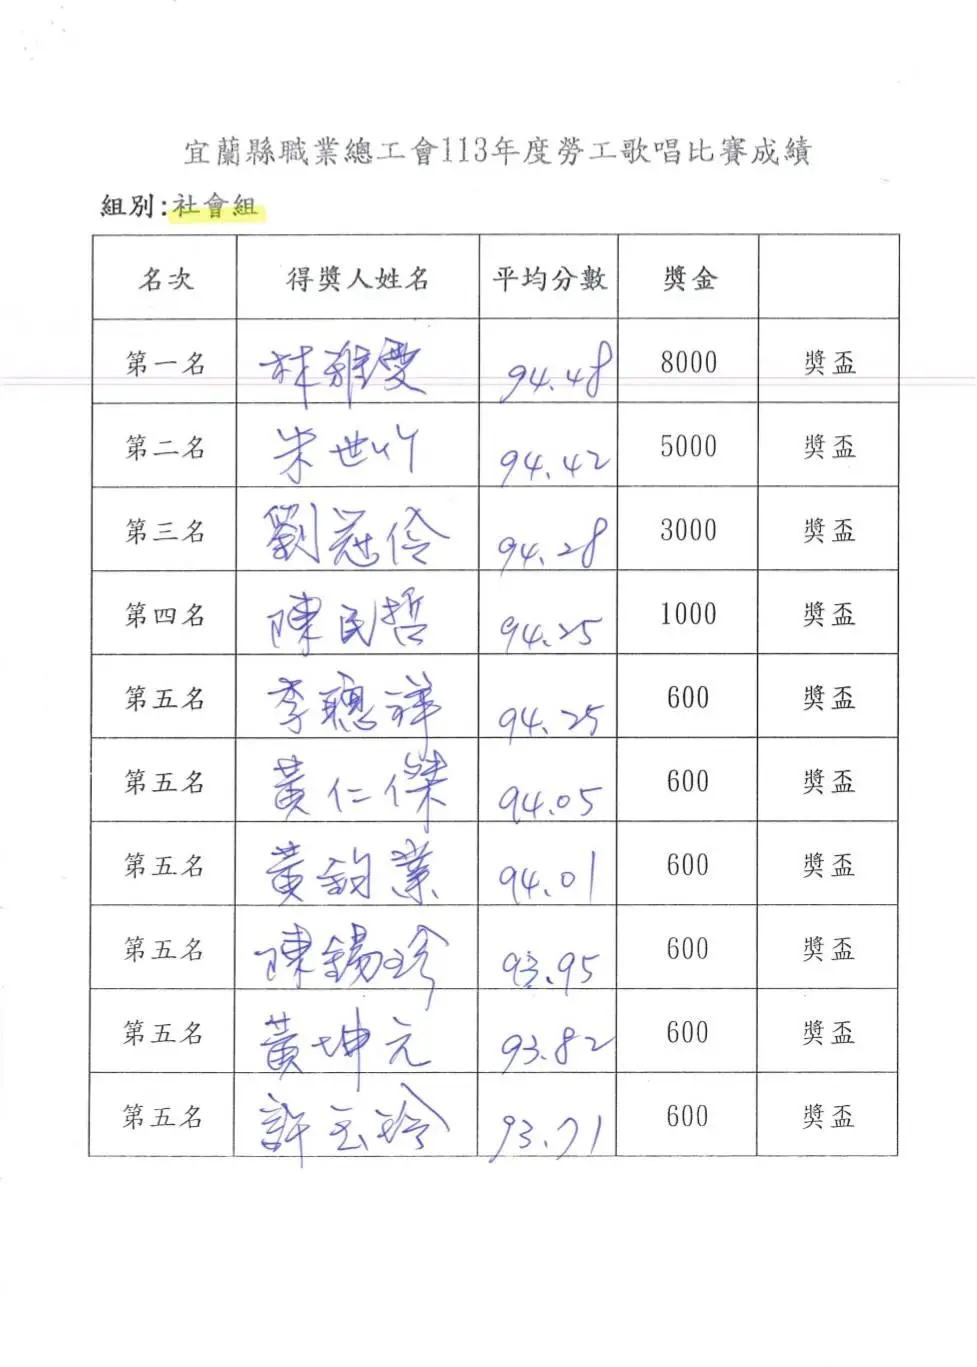 宜蘭縣職業總工會113年度勞工歌唱比賽成績
組別:社會組
名次 得獎人姓名 平均分數 獎金
第一名 林雅雯 94.48 8000 獎盃
第二名 朱世竹 94.42 5000 獎盃
第三名 劉冠伶 94.28 3000 獎盃
第四名 陳民哲 94.25 1000 獎盃
第五名 李聰祥 94.25 600 獎盃
第五名 黃仁傑 94.05 600 獎盃
第五名 黃鈞業 94.01 600 獎盃
第五名 陳錫珍 93.95 600 獎盃
第五名 黃坤元 93.82 600 獎盃
第五名 許玉玲 93.71 600 獎盃